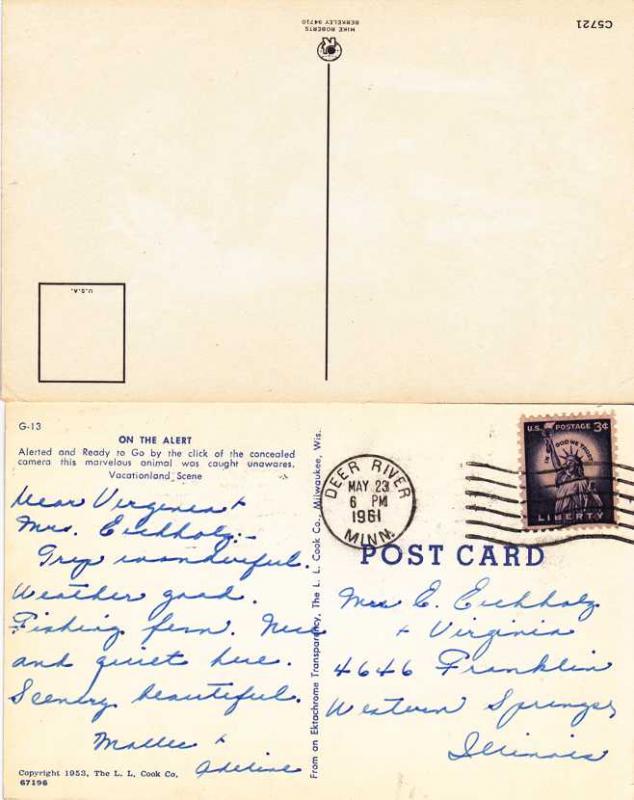 C5721
MIKE ROBERTS
BERKELEY 94710
U.S.A.
G-13
ON THE ALERT
Alerted and Ready to Go by the click of the concealed
camera this marvelous animal was caught unawares.
Vacationland Scene
Dear Virginia +
Mrs. Eichholz:-
Trip wonderful.
Weather good.
Fishing fun. Nice
and quiet here.
Scenery beautiful.
&
Adeline
Copyright 1953, The L. L. Cook Co.
67196
From an Ektachrome Transparency, The L. L. Cook Co., Milwaukee, Wis.
DEER RIVER
MAY 23
6 PM
1961
MINN.
U.S. POSTAGE 3¢
IN GOD WE TRUST
LIBERTY
POST CARD
Mrs E. Eichholz
+ Virginia
4646 Franklin
Western Springs,
Illinois